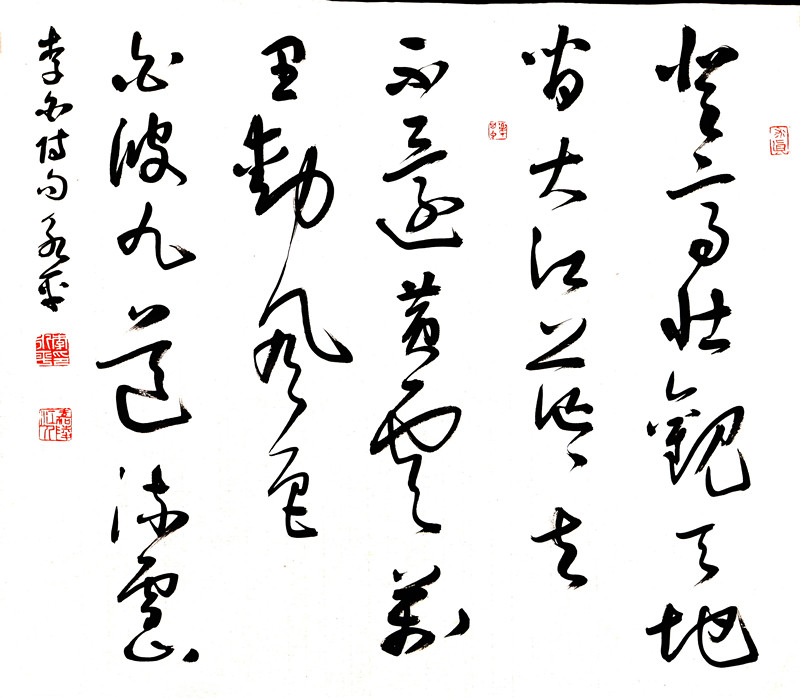 登高壮觀天地
間大江茫〻去
不還黄雲萬
里動風色
白波九道流雪山
李白詩句永平